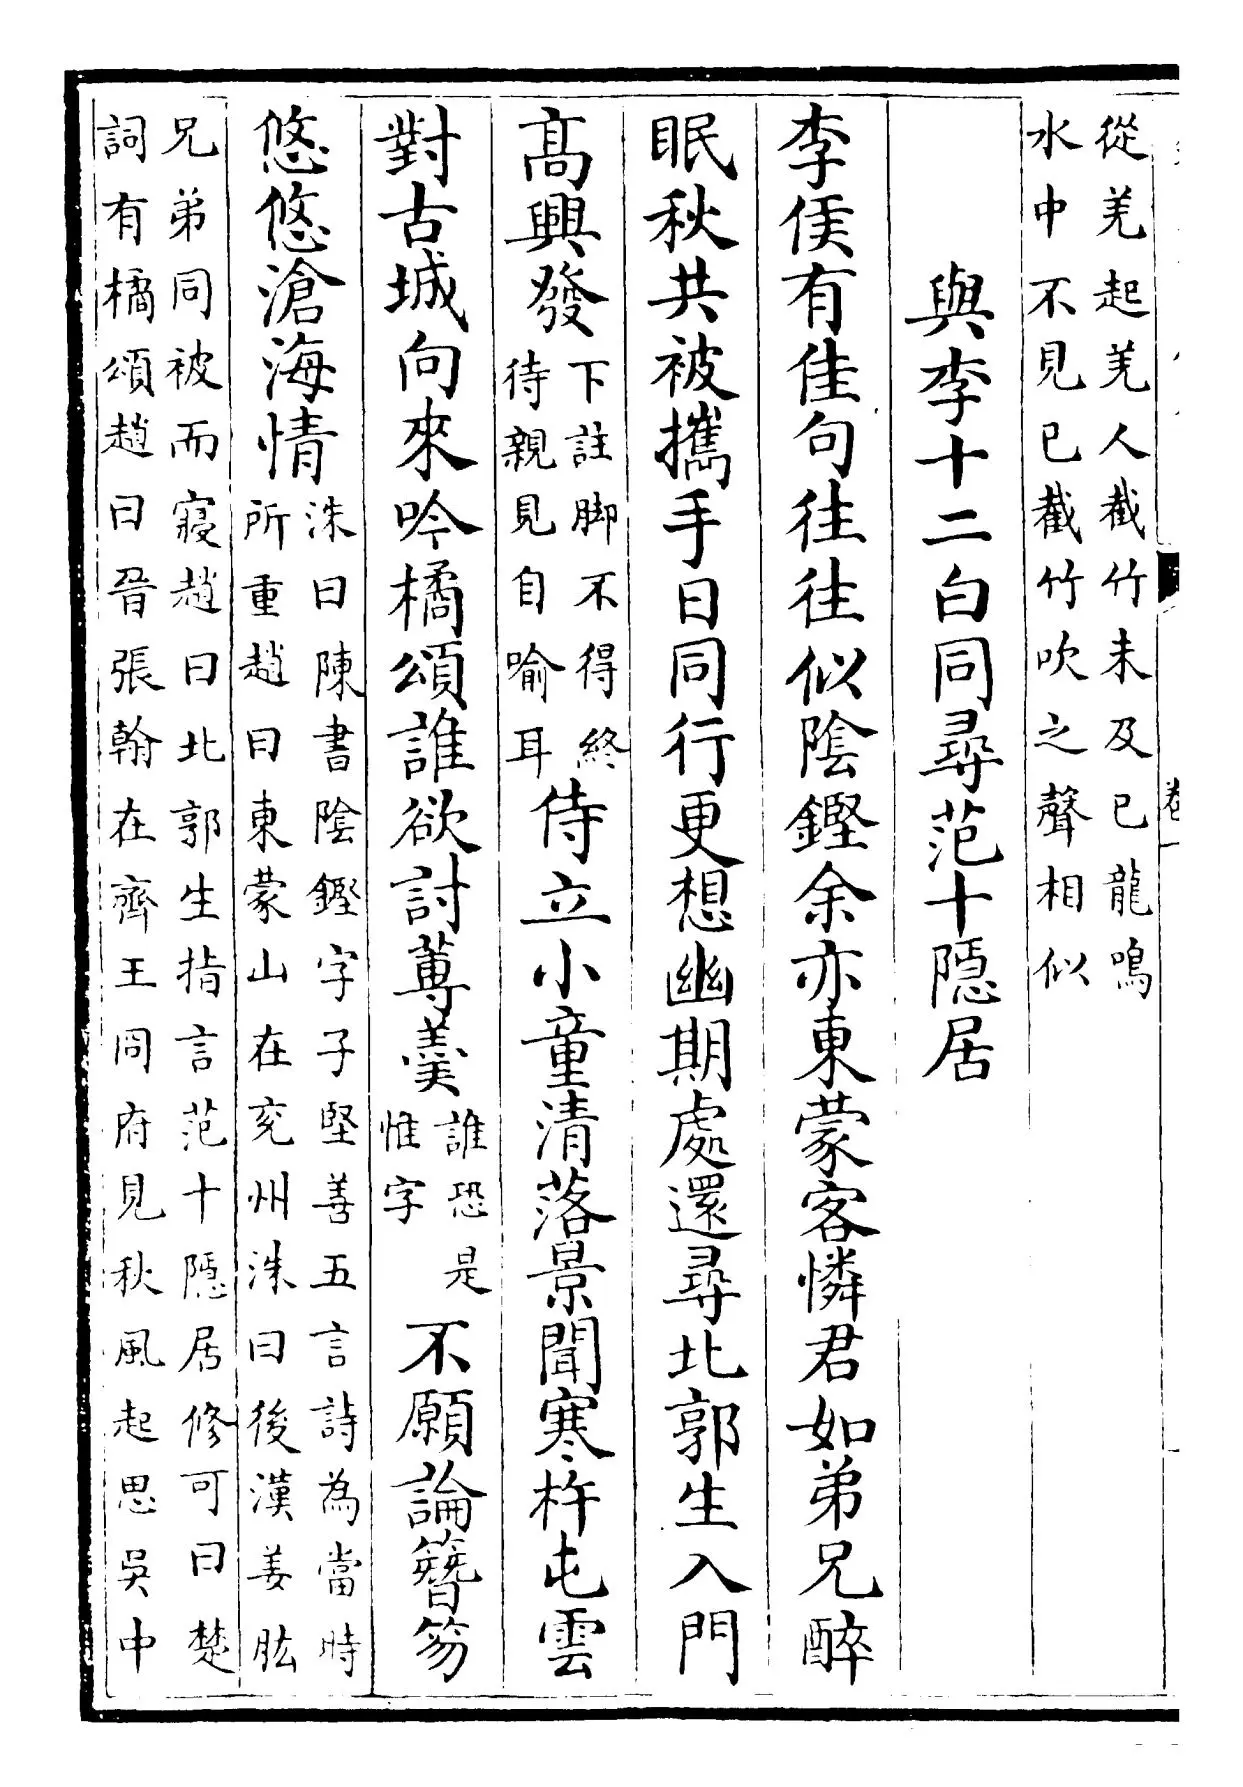 從羌起羌人截竹未及已龍鳴
水中不見已截竹吹之聲相似
與李十二白同尋范十隱居
李侯有佳句往往似陰鏗余亦東蒙客憐君如弟兄醉
眠秋共被攜手日同行更想幽期處還尋北郭生入門
高興發
下註脚不得終
待親見自喻耳
侍立小童清落景聞寒杵屯雲
對古城向來吟橘頌誰欲討蓴羹
誰恐是
惟字
不願論簪笏
悠悠滄海情
洙曰陳書陰鏗字子堅善五言詩為當時
所重趙曰東蒙山在兖州洙曰後漢姜肱
兄弟同被而寢趙曰北郭生指言范十隱居修可曰楚
詞有橘頌趙曰晉張翰在齊王冏府見秋風起思吳中
卷一